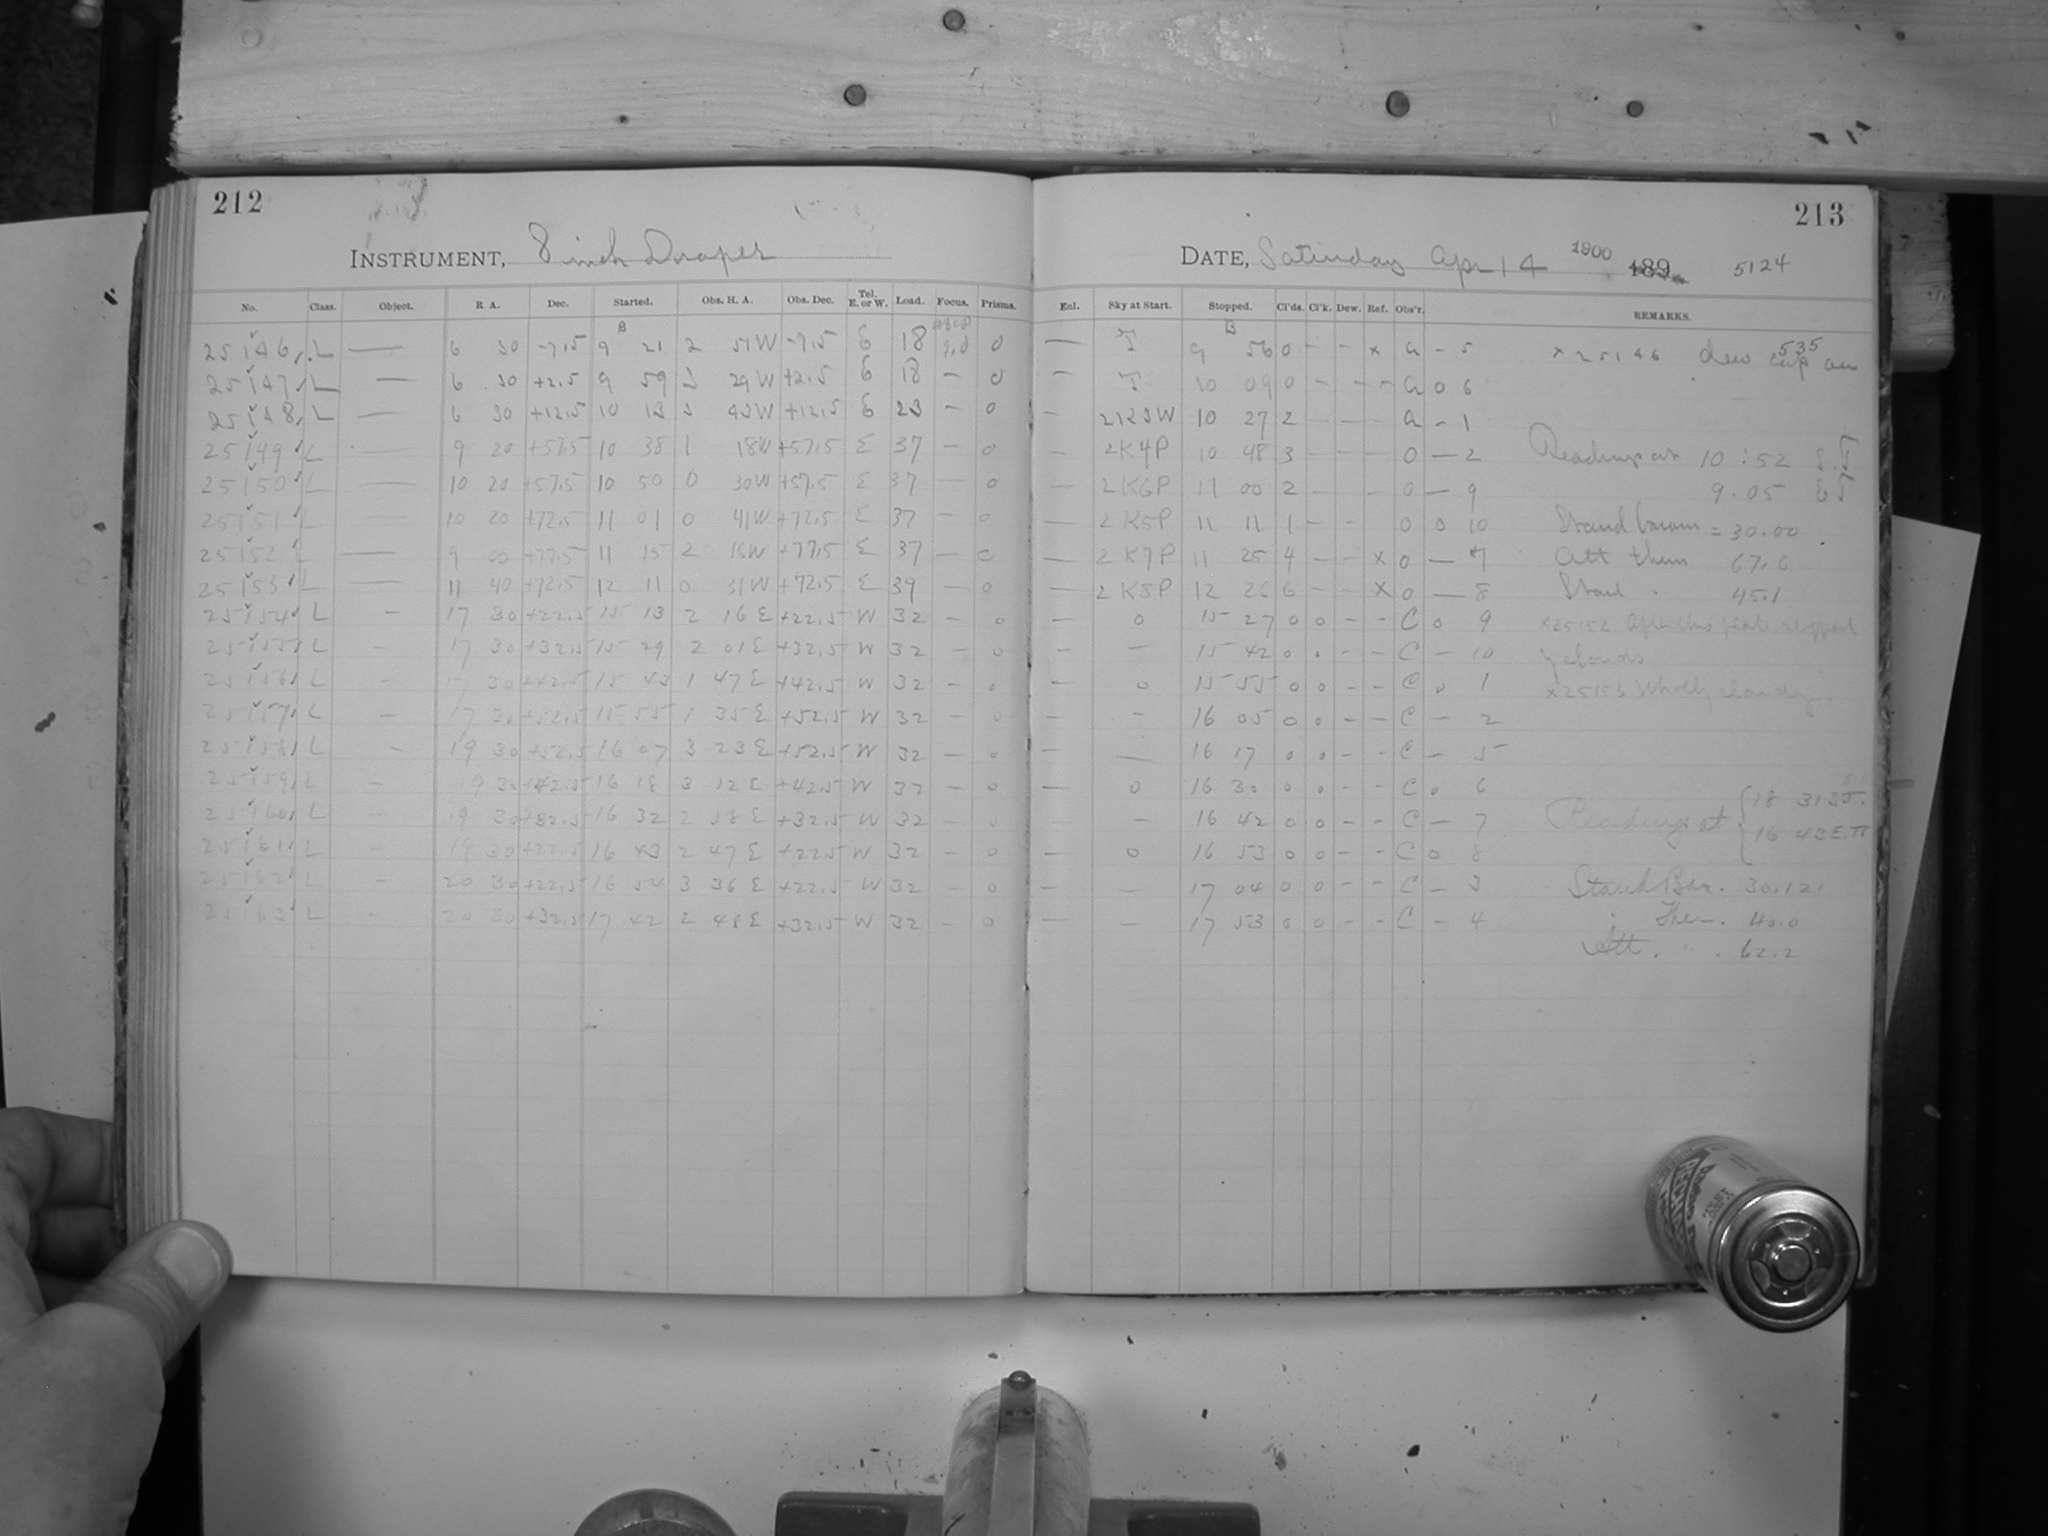 212
213
INSTRUMENT, 8 inch Draper
DATE, Saturday Apr 14 1900 189 5124
No. Class. Object. R. A. Dec. Started. Obs. H. A. Obs. Dec. Tel. E. or W. Load. Focus. Prisms. Enl. Sky at Start. Stopped. Cl'ds. Cl'k. Dew. Ref. Obs'r. REMARKS.
25146 L — 6 30 -7.5 9 21 2 51W -7.5 E 18 9.0 0 — T 9 56 0 - - x a - 5 x 25146 dew cap on 535
25147 L — 6 30 +2.5 9 59 3 29W +2.5 E 18 - 0 — T 10 09 0 - - - a 0 6
25148 L — 6 30 +12.5 10 13 3 43W +12.5 E 23 - 0 — 21K3W 10 27 2 - - - a - 1
25149 L — 9 20 +57.5 10 38 1 18W +57.5 E 37 — 0 — 2K4P 10 48 3 - - - 0 — 2 Readings at 10:52 S.T.
25150 L — 10 20 +57.5 10 50 0 30W +57.5 E 37 - 0 — 2K6P 11 00 2 - - - 0 — 9 9.05 ET
25151 L — 10 20 +72.5 11 01 0 41W +72.5 E 37 - 0 — 2K5P 11 11 1 - - 0 0 10 Stand barom = 30.00
25152 L — 9 00 +77.5 11 15 2 16W +77.5 E 37 — 0 — 2K7P 11 25 4 - - x 0 — 7 Att them 67.6
25153 L — 11 40 +72.5 12 11 0 31W +72.5 E 39 — 0 — 2K8P 12 26 6 - - x 0 — 8 Stand " 45.1
25154 L - 17 30 +22.5 15 13 2 16E +22.5 W 32 - 0 — 0 15 27 0 0 - - C 0 9 x25152 After this plate stopped
25155 L - 17 30 +32.5 15 29 2 01E +32.5 W 32 - 0 — — 15 42 0 0 - - C - 10 by clouds
25156 L - 17 30 +42.5 15 43 1 47E +42.5 W 32 - 0 — 0 15 55 0 0 - - C 0 1 x25153 Wholly cloudy.
25157 L - 17 30 +52.5 15 55 1 35E +52.5 W 32 - 0 — - 16 05 0 0 - - C - 2
25158 L - 19 30 +52.5 16 07 3 23E +52.5 W 32 - 0 — — 16 17 0 0 - - C - 5
25159 L - 19 30 +42.5 16 18 3 12E +42.5 W 32 - 0 — 0 16 30 0 0 - - C 0 6
25160 L - 19 30 +32.5 16 32 2 58E +32.5 W 32 - 0 — - 16 42 0 0 - - C - 7 Readings at { 18 31 S.T. 16 43 E.T.
25161 L - 19 30 +22.5 16 43 2 47E +22.5 W 32 - 0 — 0 16 53 0 0 - - C 0 8
25162 L - 20 30 +22.5 16 54 3 36E +22.5 W 32 - 0 — - 17 04 0 0 - - C - 3 Stand Bar. 30.121
25163 L - 20 30 +32.5 17 42 2 48E +32.5 W 32 - 0 — - 17 53 0 0 - - C - 4 " Ther. 40.0
Att. " 62.2